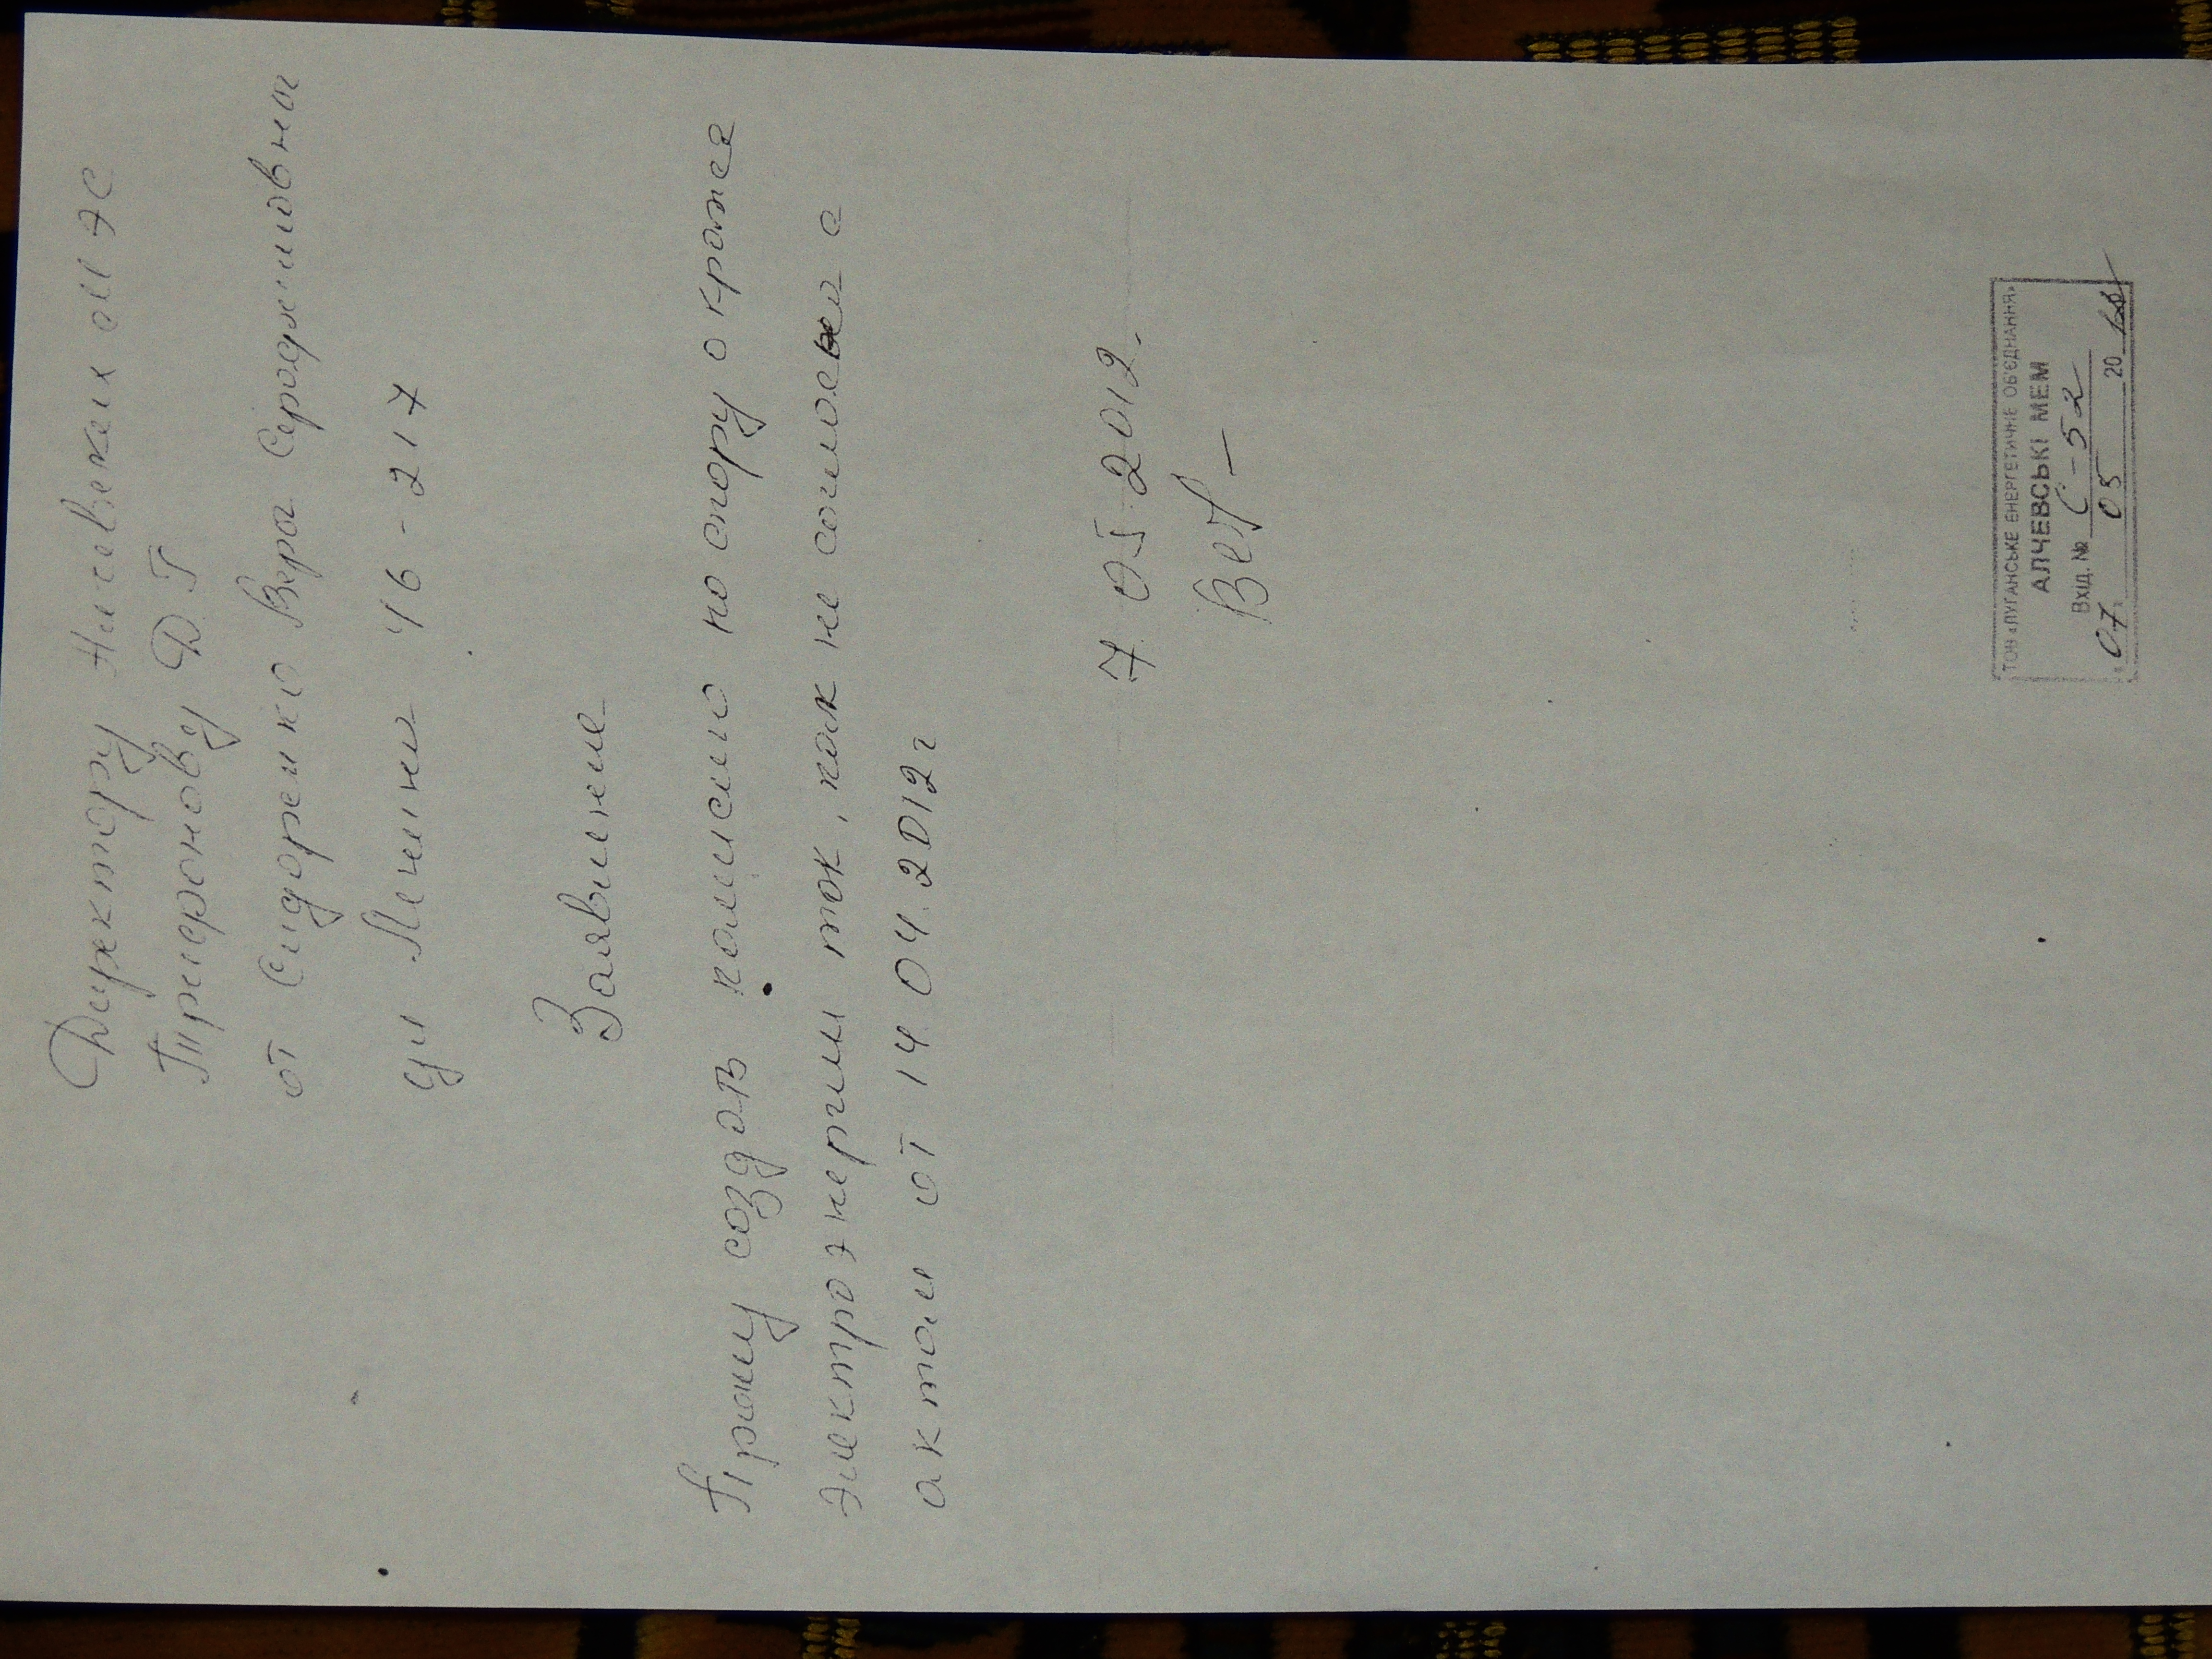 Директору
от Сидоренко Вера
ул Ленина 46-217
Заявление
Прошу создать комиссию по спору о краже
электроэнергии так, как не согласна с
актом от 14.04.2012г
7 05 2012.
ТОВ «ЛУГАНСЬКЕ ЕНЕРГЕТИЧНЕ ОБ'ЄДНАННЯ»
АЛЧЕВСЬКІ МЕМ
Вхід. № С-52
07 05 20